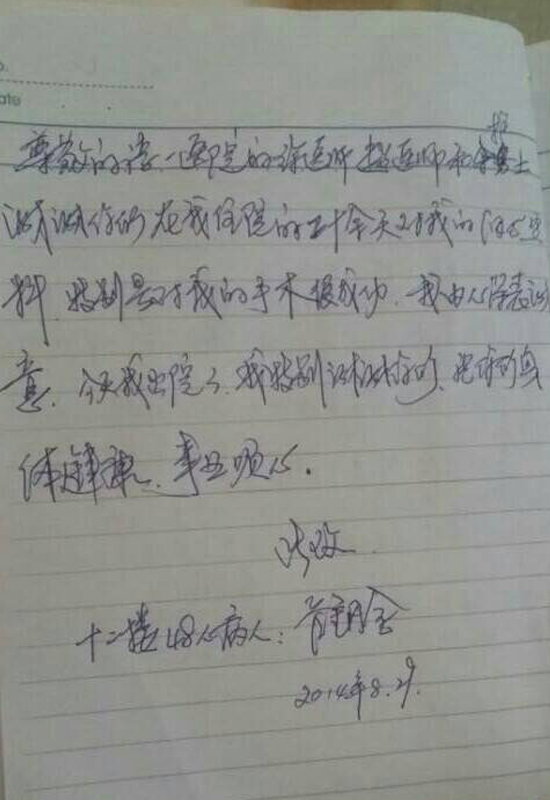 o.
ate
护
尊敬的 一医院的徐医师 医师和 护士
谢谢你们在我住院的二十余天对我的
料 特别是对我的手术很成功。我由心 表谢
意。今天我出院了。我特别谢谢你们。 你们身
体健康、事业顺心。
此致
十二楼48 病人：
2014年8.29.